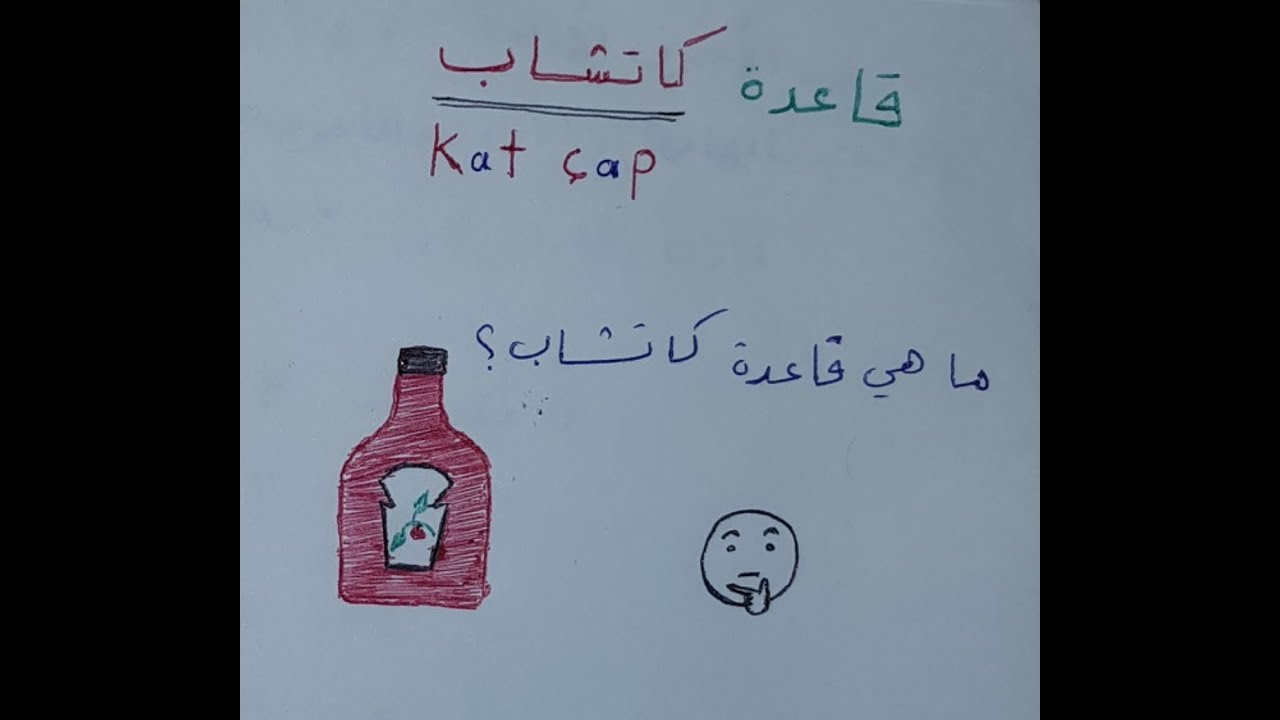 قاعدة كاتشاب
Kat çap
ما هي قاعدة كاتشاب؟